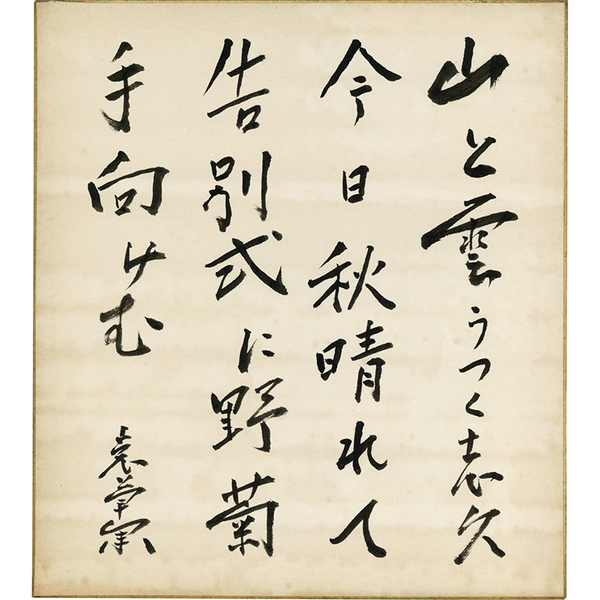 山と雲うつく志久
今日秋晴れて
告別式に野菊
手向けむ
哀草果